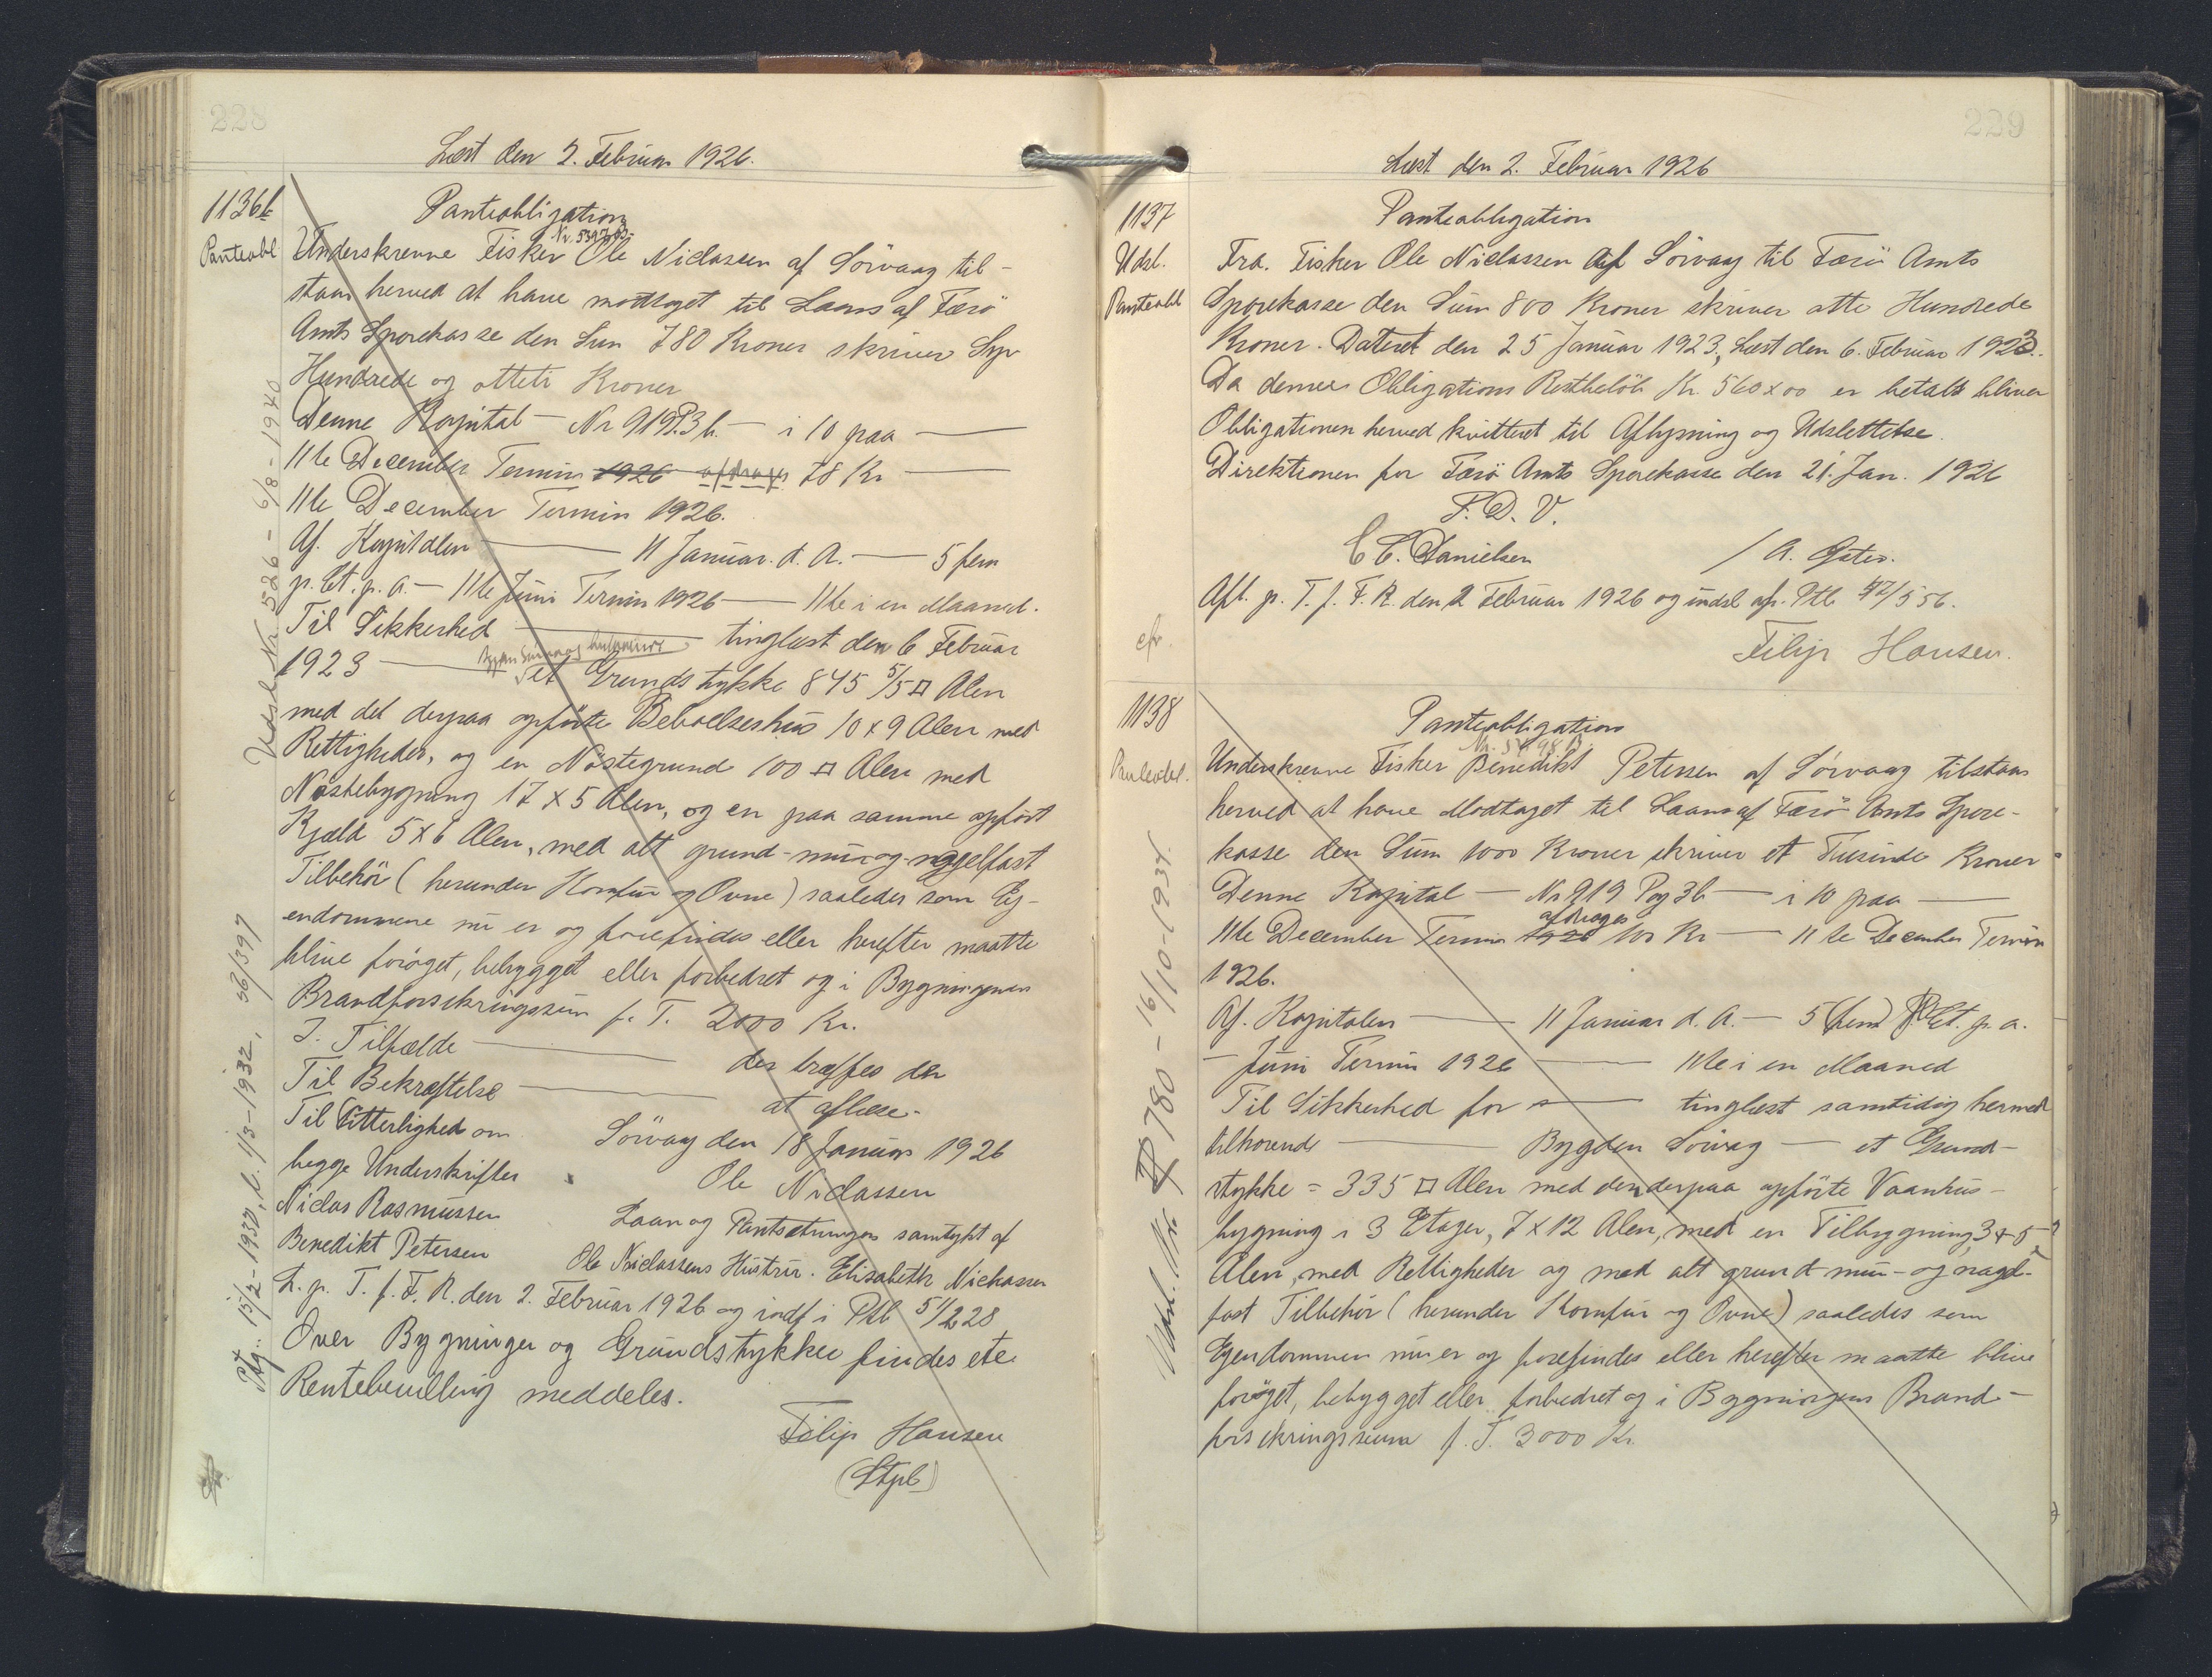 228
Læst den 2. Februar 1926.
1136b
Panteobl
Panteobligation
Underskrevne Fisker Ole Niclassen af Sörvaag til-
staar herved at have modtaget til Laans af Færö
Amts Sparekasse den Sum 780 Kroner skriver Syv
Hundrede og ottete Kroner
Denne Kapital — Nr 919P.3b. — i 10 paa —
11te December Termin 1926 afdrages 78 Kr —
11te December Termin 1926.
Af. Kapitalen — 11 Januar. d. A. — 5 fem
p. Ct. p. a. — 11te Juni Termin 1926 — 11te i en Maaned.
Til Sikkerhed — tinglæst den 6 Februar
1923 — et Grundstykke 845 5/5 □ Alen
med det derpaa opförte Beboelseshus 10 x 9 Alen med
Rettigheder, og en Nöstegrund 100 □ Alen med
Nöstebygning 17 x 5 Alen, og en paa samme opfört
Kjæld 5 x 6 Alen, med alt grund- mur og nagelfast
Tilbehör (herunder Komfur og Ovne) saaledes som Ej-
endommene nu er og forefindes eller herefter maatte
blive foröget, bebygget eller forbedret og i Bygningernes
Brandforsikringssum f. T. 2000 Kr.
I. Tilfælde — der træffes den
Til Bekræftelse — at aflæse.
Til Vitterlighed om Sörvaag den 18 Januar 1926
begge Underskrifter Ole Niclassen
Niclas Rasmussen Laan og Pantsætningen samtykt af
Benedikt Petersen Ole Niclassens Hustru. Elisabeth Niclassen
L. p. T. f. F. R. den 2. Februar 1926 og indf i Ptb 51/228
Over Bygninger og Grundstykker findes ete
Rentebevilling meddeles.
Filip Hansen
(Stpl)
Udsl. Nr. 526 - 6/8 - 1940
15/2 - 1932, l. 1/3 - 1932, 56/397
229
Læst den 2. Februar 1926
1137
Udsl.
Panteobl
Panteobligation
Fra. Fisker Ole Niclassen af Sörvaag til Færö Amts
Sparekasse den Sum 800 Kroner skriver otte Hundrede
Kroner. Dateret den 25 Januar 1923, Læst den 6. Februar 1923.
Da dennes Obligations Restbelöb Kr. 560 x 00 er betalt bliver
Obligationen herved kvitteret til Aflysning og Udslettelse.
Direktionen for Færö Amts Sparekasse den 21. Jan. 1926
F. D. V.
C C. Danielsen / A.
Afl. p. T. f. F. R. den 2 Februar 1926 og udsl af. Ptb 47/556.
Filip Hansen.
cfr.
1138
Panteobl.
Panteobligation
Underskrevne Fisker Benedikt Petersen af Sörvaag tilstaar
herved at have Modtaget til Laans af Færö Amts Spare-
kasse den Sum 1000 Kroner skriver et Tusinde Kroner
Denne Kapital — Nr 919 Pag 3b — i 10 paa —
afdrages
11te December Termin 1926 100 Kr — 11te December Termin
1926.
Af. Kapitalen — 11 Januar d. A. — 5 (fem) p Ct. p. a.
— Juni Termin 1926 — 11te i en Maaned
Til Sikkerhed for — tinglæst samtidig hermed
tilhörende — Bygden Sörvag — et Grund-
stykke = 335 □ Alen med den derpaa opförte Vaanhus-
bygning i 3 Etager, 7 x 12 Alen, med en Tilbygning 3 x 5
Alen, med Rettigheder og med alt grund- mur- og nagel-
fast Tilbehör (herunder Komfur og Ovne) saaledes som
Ejendommen nu er og forefindes eller herefter maatte blive
foröget, bebygget eller forbedret og i Bygningens Brand-
forsikringssum f. T. 3000 Kr.
Udsl. Nr. 780 - 16/10 - 1934.